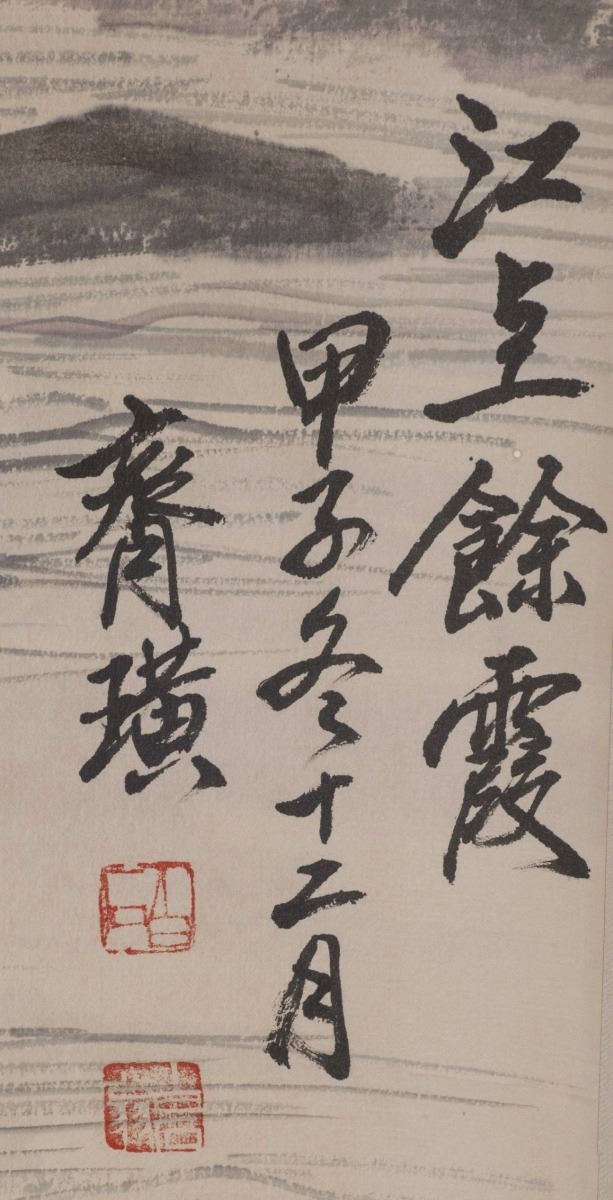 江上餘霞
甲子冬十二月
齊璜
白石